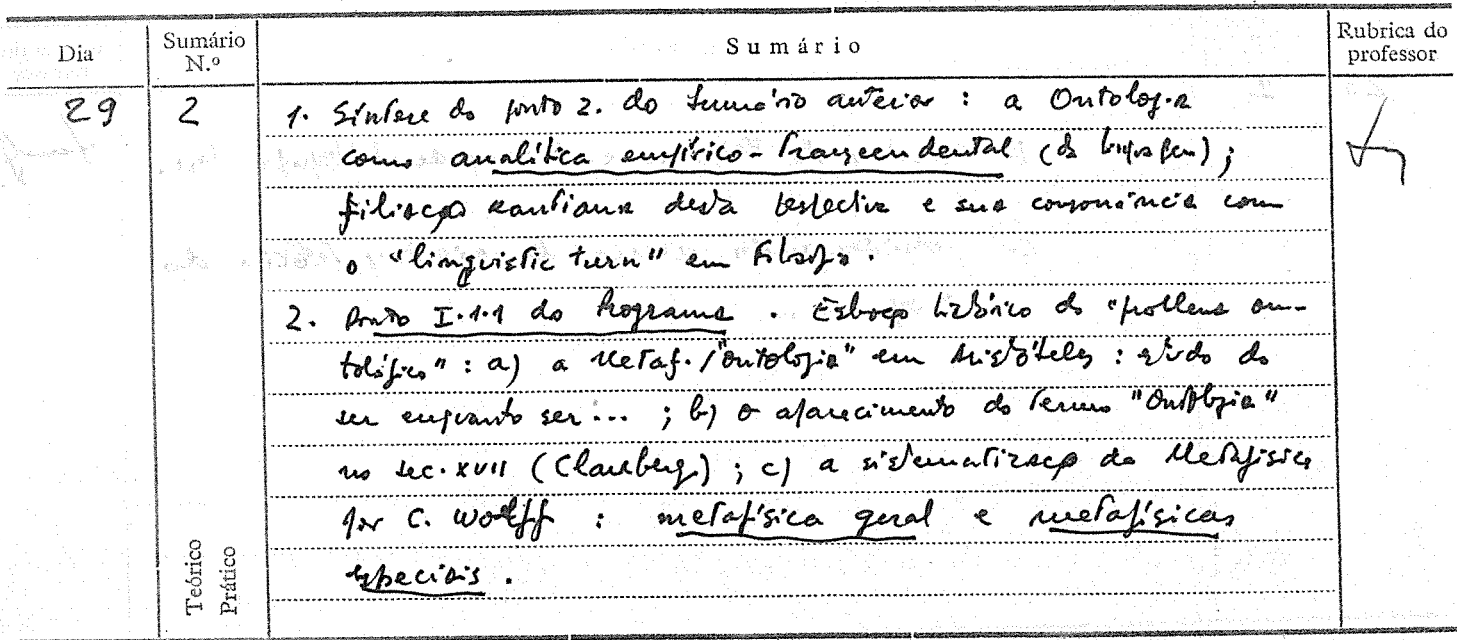 Dia Sumário N.º Sumário Rubrica do professor
29 2 1. Síntese do ponto 2. do Sumário anterior : a Ontologia
como analítica empírico-transcendental (da linguagem) ;
filiação kantiana desta perspectiva e sua consonância com
o "linguistic turn" em Filosofia .
2. Ponto I.1.1 do Programa . Esboço histórico do "problema on-
tológico" : a) a Metaf./"Ontologia" em Aristóteles : estudo do
ser enquanto ser... ; b) o aparecimento do termo "Ontologia"
no sec. XVII (Clauberg) ; c) a sistematização da Metafísica
por C. Wolff : metafísica geral e metafísicas
especiais .
Teórico
Prático